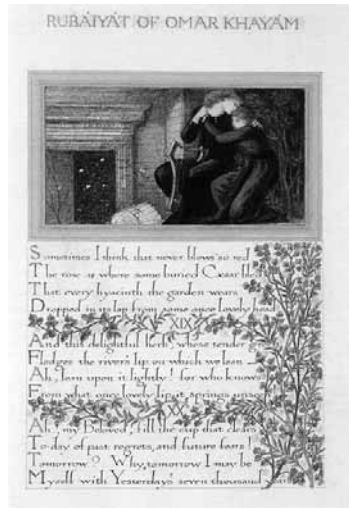 RUBÁIYÁT OF OMAR KHAYÁM
Sometimes I think that never blows so red
The rose as where some buried Cæsar bled
That every hyacinth the garden wears
Dropped in its lap from some once lovely head
XIX
And this delightful herb whose tender gr
Fledges the river's lip on which we lean
Ah, lean upon it lightly! for who knows
From what once lovely lip it springs unseen
XX
Ah! my Beloved, fill the cup that clears
To-day of past regrets, and future fears!
Tomorrow? Why, tomorrow I may be
Myself with Yesterday's seven thousand years